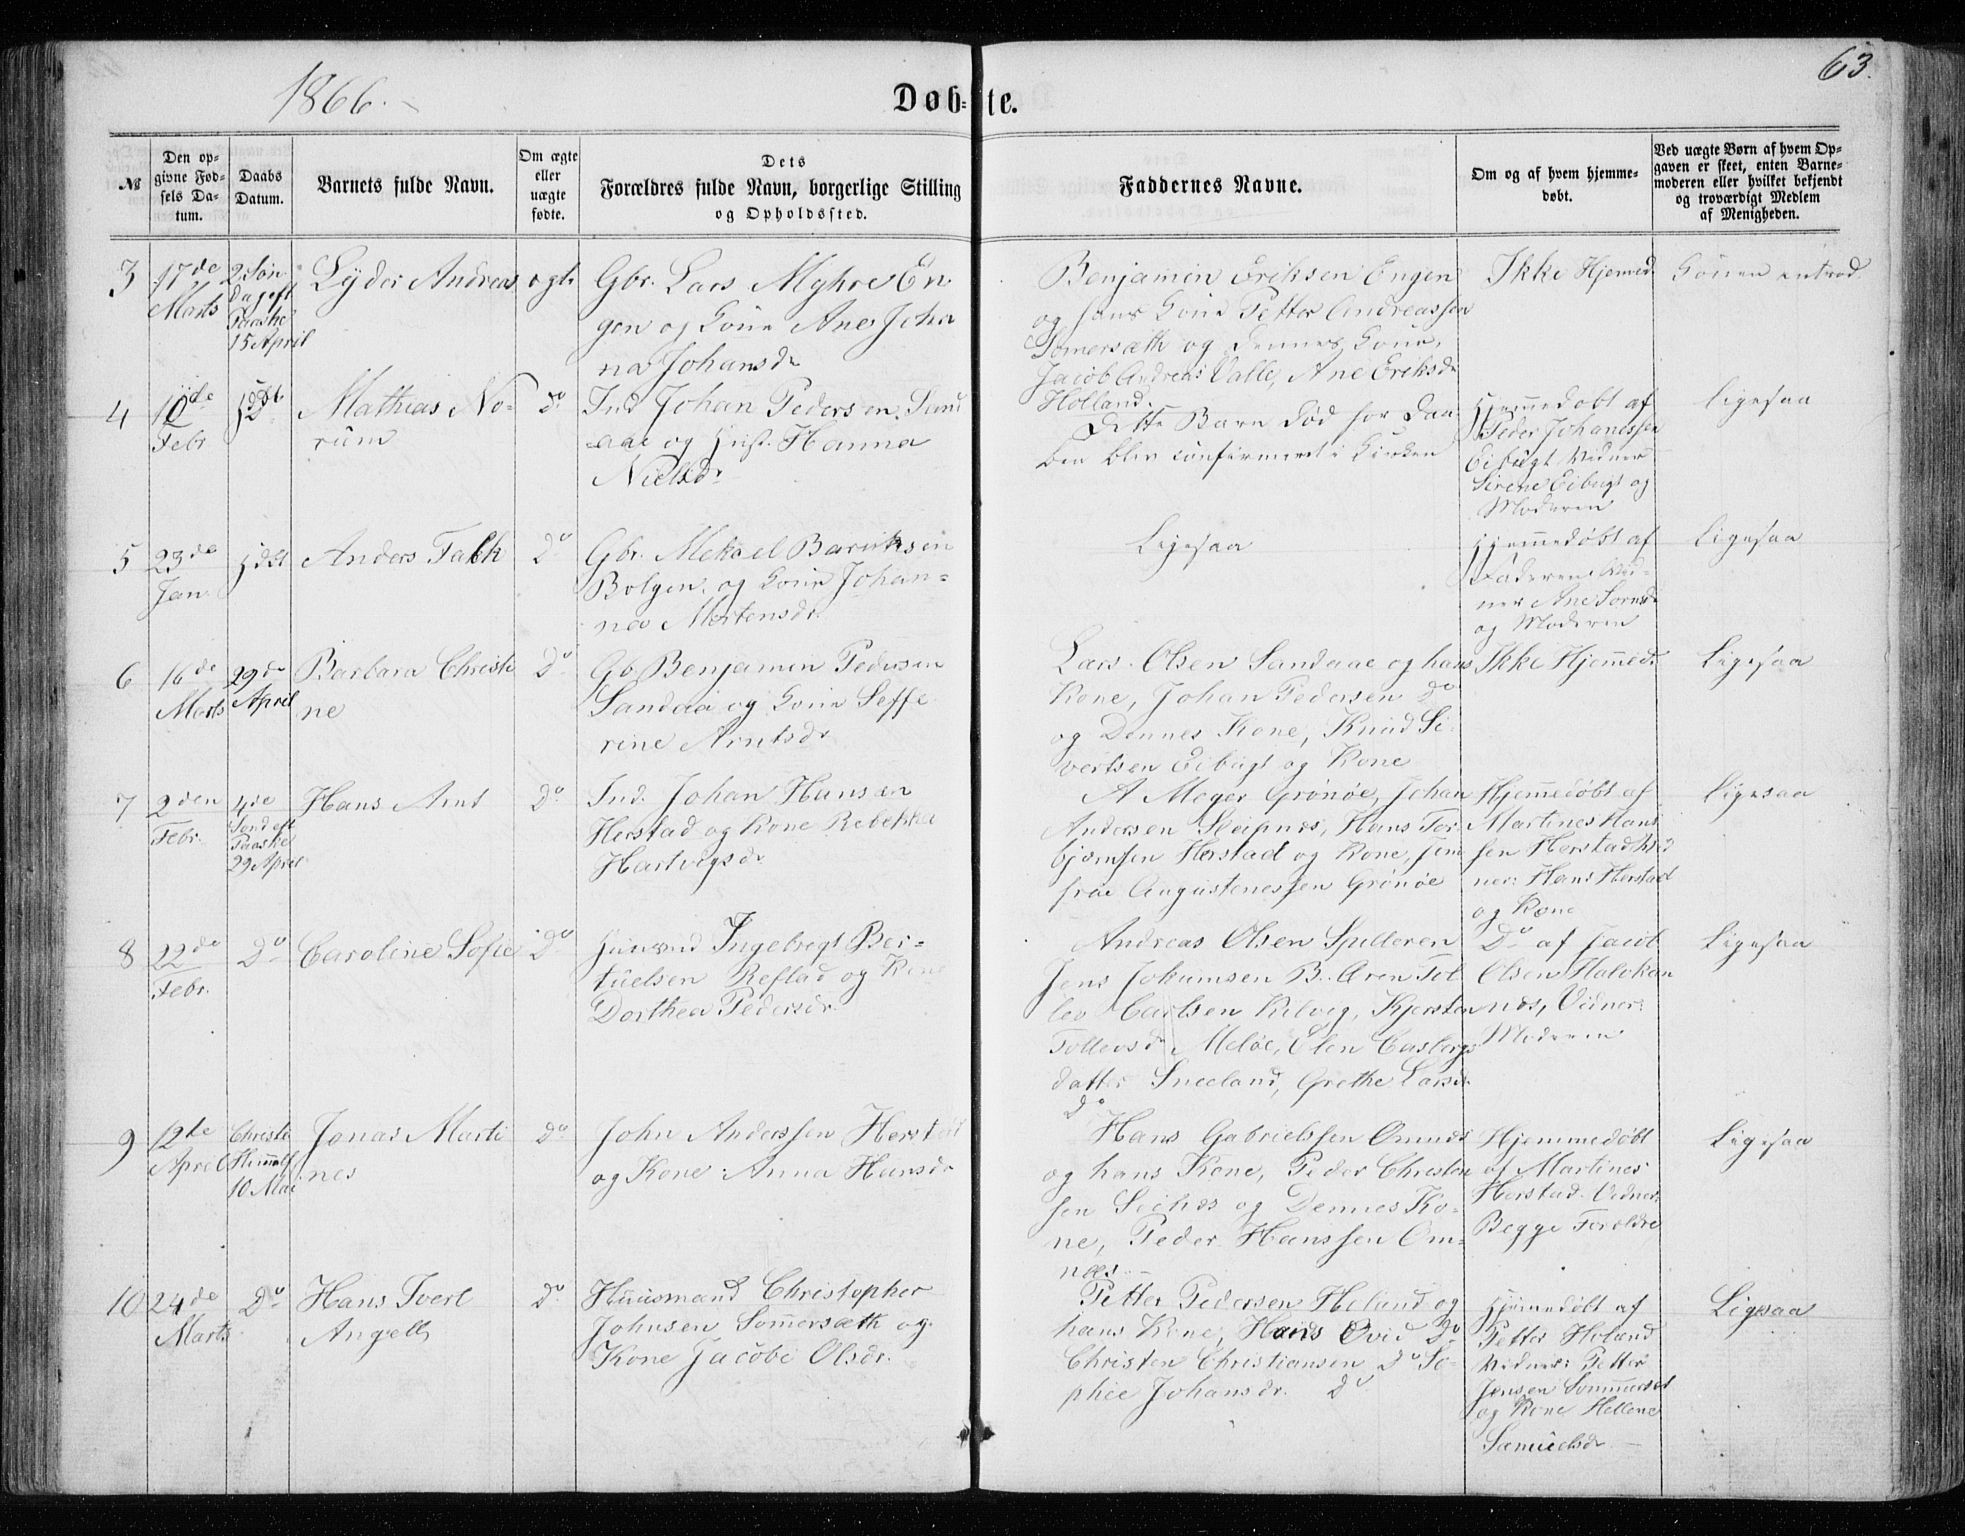 1866.
Døb-te.
63.
№
Den opgivne Fødsels Datum.
Daabs Datum.
Barnets fulde Navn.
Om ægte eller uægte fødte.
Dets Forældres fulde Navn, borgerlige Stilling og Opholdssted.
Faddernes Navne.
Om og af hvem hjemmedøbt.
Ved uægte Børn af hvem Opgaven er skeet, enten Barnemoderen eller hvilket bekjendt og troværdigt Medlem af Menigheden.
3
17de
Marts
2 Søn
Dag eft
Paaske
15 April
Lyder Andreas
ægte
Gbr. Lars Myhre En
gen og Kone Anes Joha
na Johansdr
Benjamin Eriksen Engen
og hans Kone Petter Andreassen
Somersæth og Dennes Kone,
Jacob Andreas Valle, Ane Eriksdr
Holland.
Ikke Hjemmed.
Konen introd.
4
10de
Febr
Mathias No-
rum
Do
Ind. Johan Pedersen Sand
aae og Hust. Hanna
Nielsdr
Dette Barn død før Daa
ben blev confirmeret i Kirken
Hjemmedøbt af
Peder Johanessen
Eibugt Vidner
Sirene Eibugt og
Moderen
Ligesaa
5
23de
Jan.
Anders Falk
Do
Gbr. Mekael Baruksen
Bolgen. og Kone Johan-
na Mortensdr.
Ligesaa
Hjemmedøbt af
Faderen Vid-
ner Ane Sørensdr
og Moderen
Ligesaa
6
16de
Marts
29de
April
Barbara Christi
ne
Do
Gb. Benjamin Pedersen
Sandaa og Kone Seffe
rine Arntsdr
Lars Olsen Sandaae og hans
Kone, Johan Pedersen Do
og Dennes Kone, Knud Si-
vertsen Eibugt og Kone
Ikke Hjemmed.
Ligesaa
7
2den
Febr.
4de
Sønd eft
Paaske
29 April
Hans Arnt
Do
Ind. Johan Hansen
Herstad og Kone Rebekka
Hartvigsdr
A Meger Grønøe, Johan
Andersen Sleipnes, Hans Tor-
bjørnsen Herstad og Kone, Jom
frue Augustenessen Grønøe
Hjemmedøbt af
Martines Hans
sen Herstad Vid
ner: Hans Herstad
og Kone
Ligesaa
8
22de
Febr.
Do
Caroline Sofie
Do
Huusmd Ingebregt Ber-
tuelsen Reflad og Kone
Dorthea Pedersdr
Andreas Olsen Spilleren
Jens Jokumsen B. Øren Tol
lev Carlsen Kilvig, Kjersten
Tollevsdr Meløe, Elen Casbergs
datter Sneeland, Grethe Larsdr
Do
Do af Jacob
Olsen Halvkan
næs, Vidner:
Moderen
Ligesaa
9
12te
April
Christi
Himmelf
10 Mai
Jonas Marti
nes
Do
John Anderssen Herstad
og Kone Anna Hansdr
Hans Gabrielssen Omnæs
og hans Kone, Peder Christen
sen Seines og Dennes Ko-
ne, Peder Hanssen Om-
næs
Hjemmedøbt
af Martines
Herstad. Vidner:
Begge Forældre
Ligesaa
10
24de
Marts
Do
Hans Iverl
Angell
Do
Huusmand Christopher
Johnsen Sommersæth og
Kone Jacobi Olsdr.
Petter Pedersen Holand og
hans Kone, Hans Ovid Do
Christen Christiansen Do So-
phie Johansdr. Do
Hjemmedøbt af
Petter Holand
Vidner: Petter
Jensen Sommerset
og Kone Hellene
Samuelsdr
Ligesaa